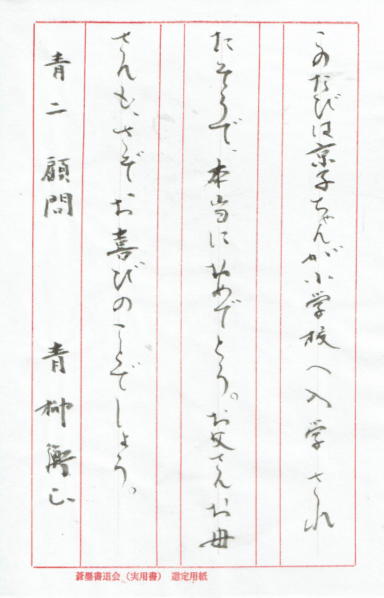 このたびは京子ちゃんが小学校へ入学され
たそうで、本当におめでとう。お父さんお母
さんも、さぞお喜びのことでしょう。
青二 顧問 青柳衡山
蒼墨書道会(実用書) 選定用紙